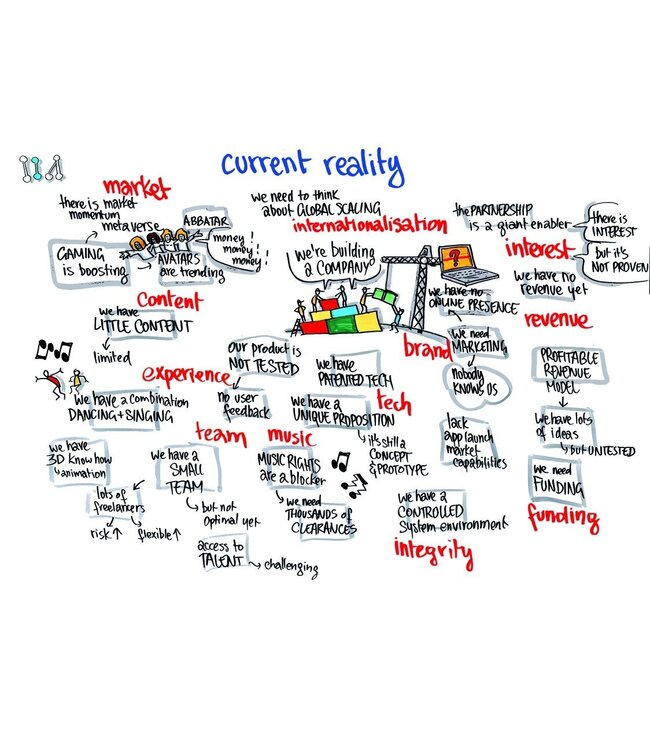 current reality
market
there is market
momentum
metaverse
ABBATAR
GAMING
is boosting
AVATARS
are trending
money!
money!
money!
we need to think
about GLOBAL SCALING
internationalisation
we're building
a COMPANY
the PARTNERSHIP
is a giant enabler
there is
INTEREST
interest
but it's
NOT PROVEN
we have no
revenue yet
revenue
PROFITABLE
REVENUE
MODEL
we have lots
of ideas
but UNTESTED
we need
FUNDING
funding
we have no
ONLINE PRESENCE
we need
MARKETING
brand
nobody
KNOWS US
lack
app launch
market
capabilities
content
we have
LITTLE CONTENT
limited
experience
we have a combination
DANCING + SINGING
our product is
NOT TESTED
no user
feedback
we have
PATENTED TECH
tech
we have a
UNIQUE PROPOSITION
it's still a
CONCEPT
& PROTOTYPE
team
we have
3D know how
+ animation
we have a
SMALL
TEAM
lots of
freelancers
risk ↑
flexible ↑
but not
optimal yet
access to
TALENT
challenging
music
MUSIC RIGHTS
are a blocker
we need
THOUSANDS of
CLEARANCES
we have a
CONTROLLED
system environment
integrity